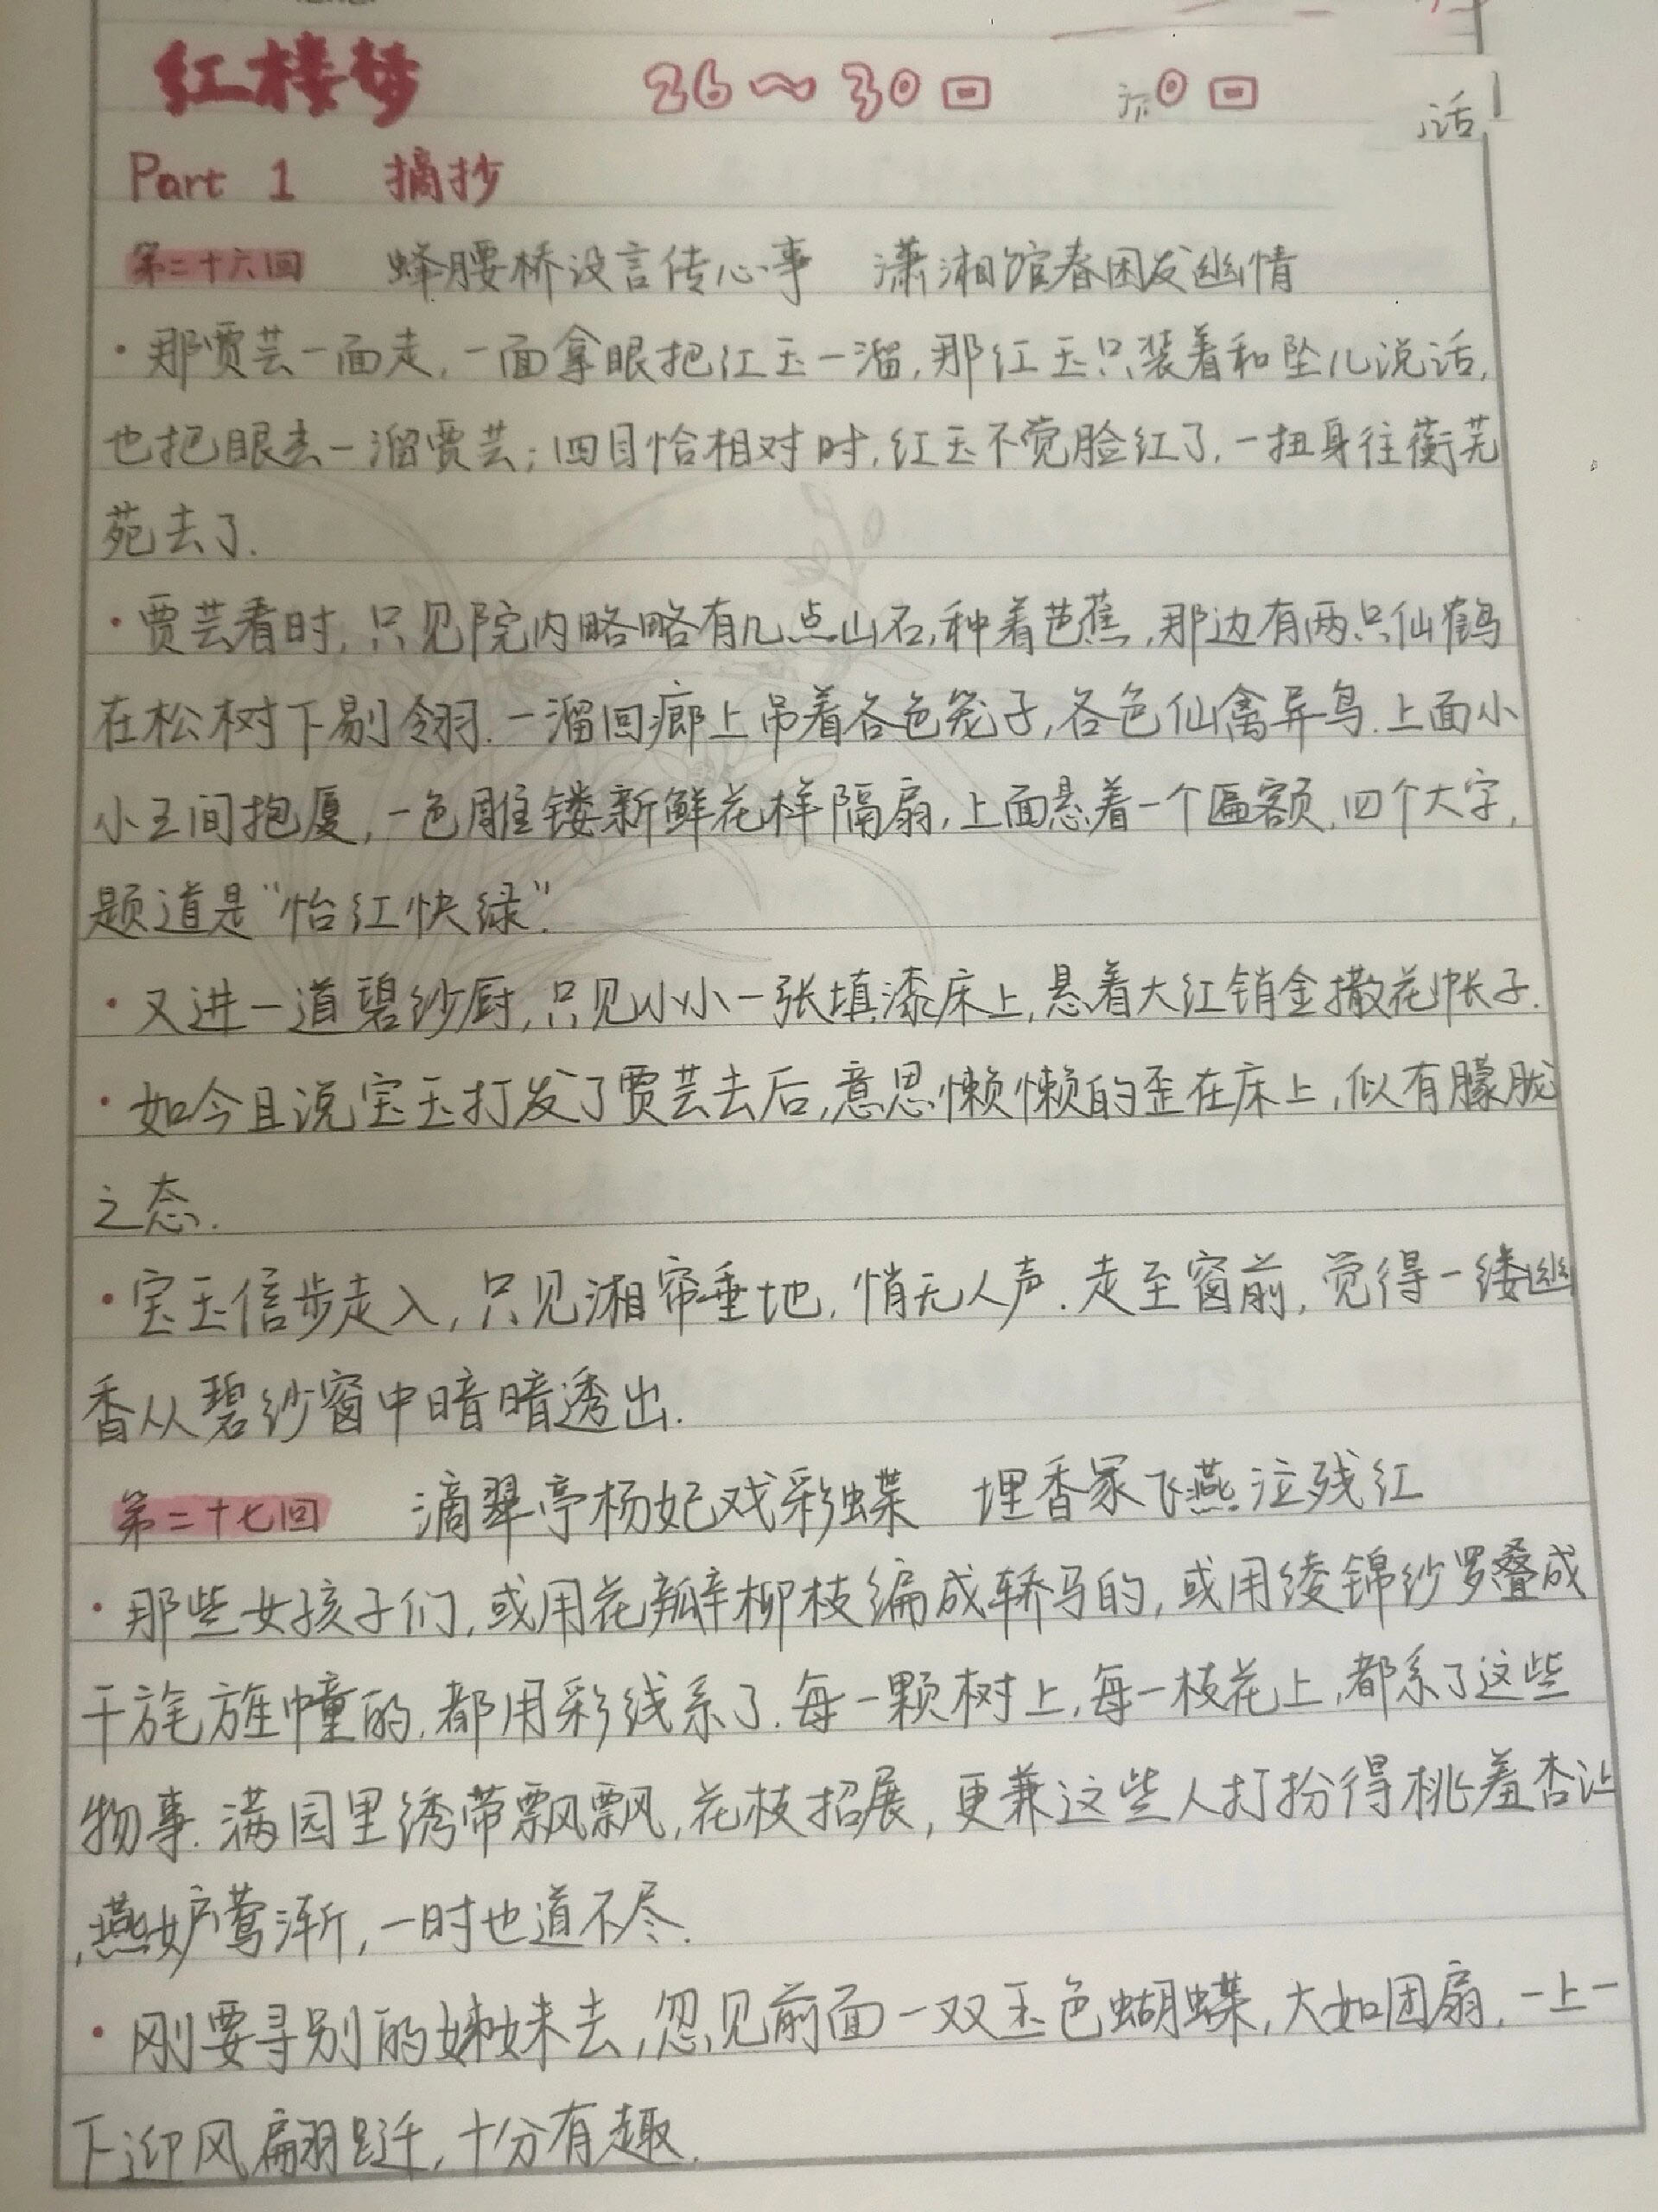 红楼梦 26～30回 0回
话
Part 1 摘抄
第二十六回 蜂腰桥设言传心事 潇湘馆春困发幽情
·那贾芸一面走,一面拿眼把红玉一溜,那红玉只装着和坠儿说话,
也把眼去一溜贾芸;四目恰相对时,红玉不觉脸红了,一扭身往蘅芜
苑去了.
·贾芸看时,只见院内略略有几点山石,种着芭蕉,那边有两只仙鹤
在松树下剔翎.一溜回廊上吊着各色笼子,各色仙禽异鸟.上面小
小五间抱厦,一色雕镂新鲜花样隔扇,上面悬着一个匾额,四个大字,
题道是“怡红快绿”.
·又进一道碧纱厨,只见小小一张填漆床上,悬着大红销金撒花帐子.
·如今且说宝玉打发了贾芸去后,意思懒懒的歪在床上,似有朦胧
之态.
·宝玉信步走入,只见湘帘垂地,悄无人声.走至窗前,觉得一缕幽
香从碧纱窗中暗暗透出.
第二十七回 滴翠亭杨妃戏彩蝶 埋香冢飞燕泣残红
·那些女孩子们,或用花瓣柳枝编成轿马的,或用绫锦纱罗叠成
干旄旌幢的,都用彩线系了.每一颗树上,每一枝花上,都系了这些
物事.满园里绣带飘飘,花枝招展,更兼这些人打扮得桃羞杏让
,燕妒莺渐,一时也道不尽.
·刚要寻别的姊妹去,忽见前面一双玉色蝴蝶,大如团扇,一上一
下迎风翩跹,十分有趣.